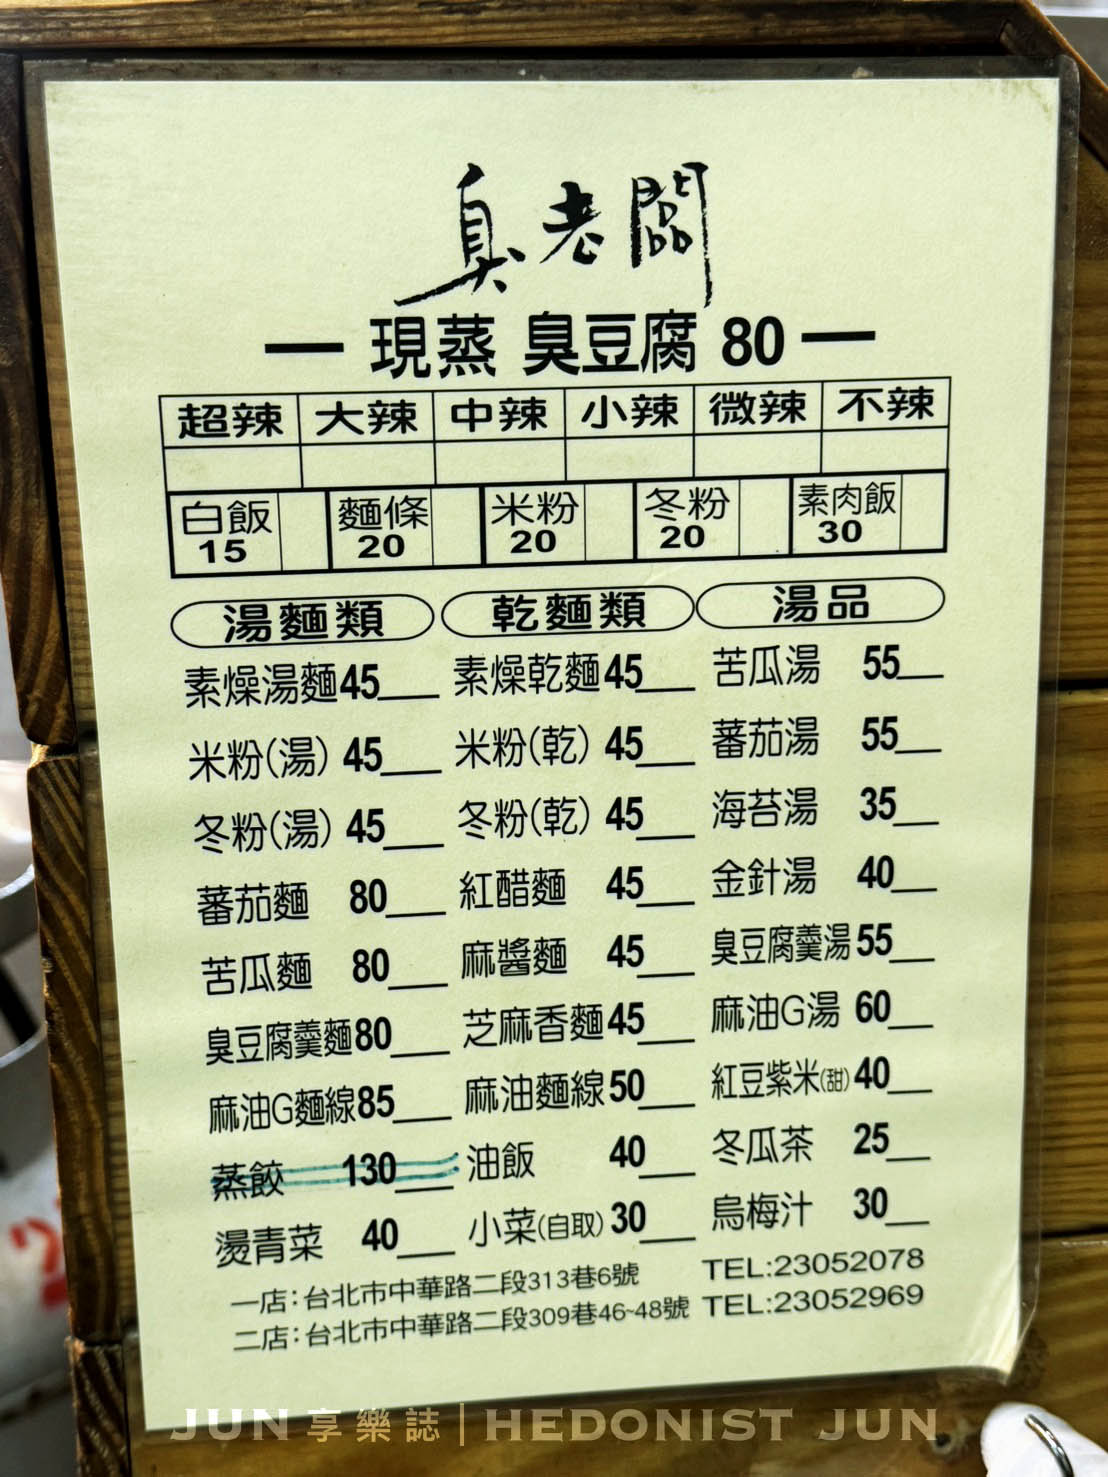 臭老闆
現蒸 臭豆腐 80
超辣 大辣 中辣 小辣 微辣 不辣
白飯 麵條 米粉 冬粉 素肉飯
15 20 20 20 30
湯麵類 乾麵類 湯品
素燥湯麵45 素燥乾麵45 苦瓜湯 55
米粉(湯) 45 米粉(乾) 45 蕃茄湯 55
冬粉(湯) 45 冬粉(乾) 45 海苔湯 35
蕃茄麵 80 紅醋麵 45 金針湯 40
苦瓜麵 80 麻醬麵 45 臭豆腐羹湯55
臭豆腐羹麵80 芝麻香麵45 麻油G湯 60
麻油G麵線85 麻油麵線50 紅豆紫米(甜)40
蒸餃 130 油飯 40 冬瓜茶 25
燙青菜 40 小菜(自取) 30 烏梅汁 30
一店:台北市中華路二段313巷6號 TEL:23052078
二店:台北市中華路二段309巷46~48號 TEL:23052969
JUN 享樂誌 | HEDONIST JUN